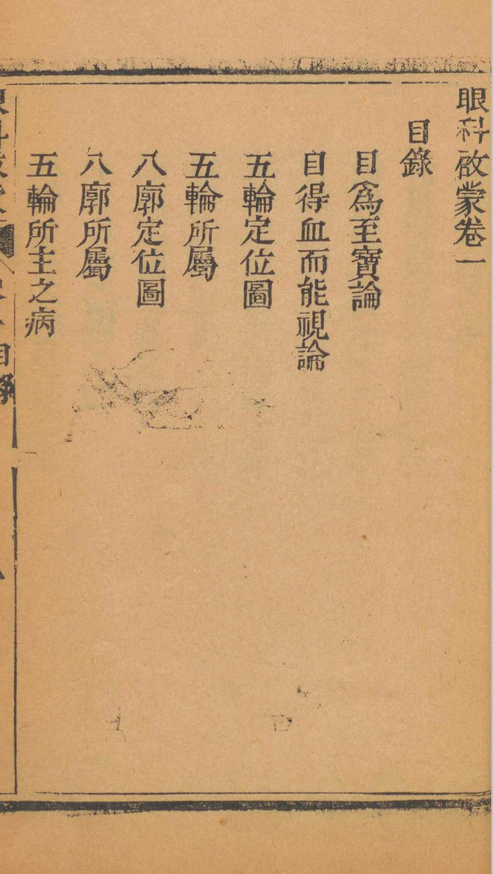 眼科啟蒙卷一
目錄
目為至寶論
目得血而能視論
五輪定位圖
五輪所屬
八廓定位圖
八廓所屬
五輪所主之病